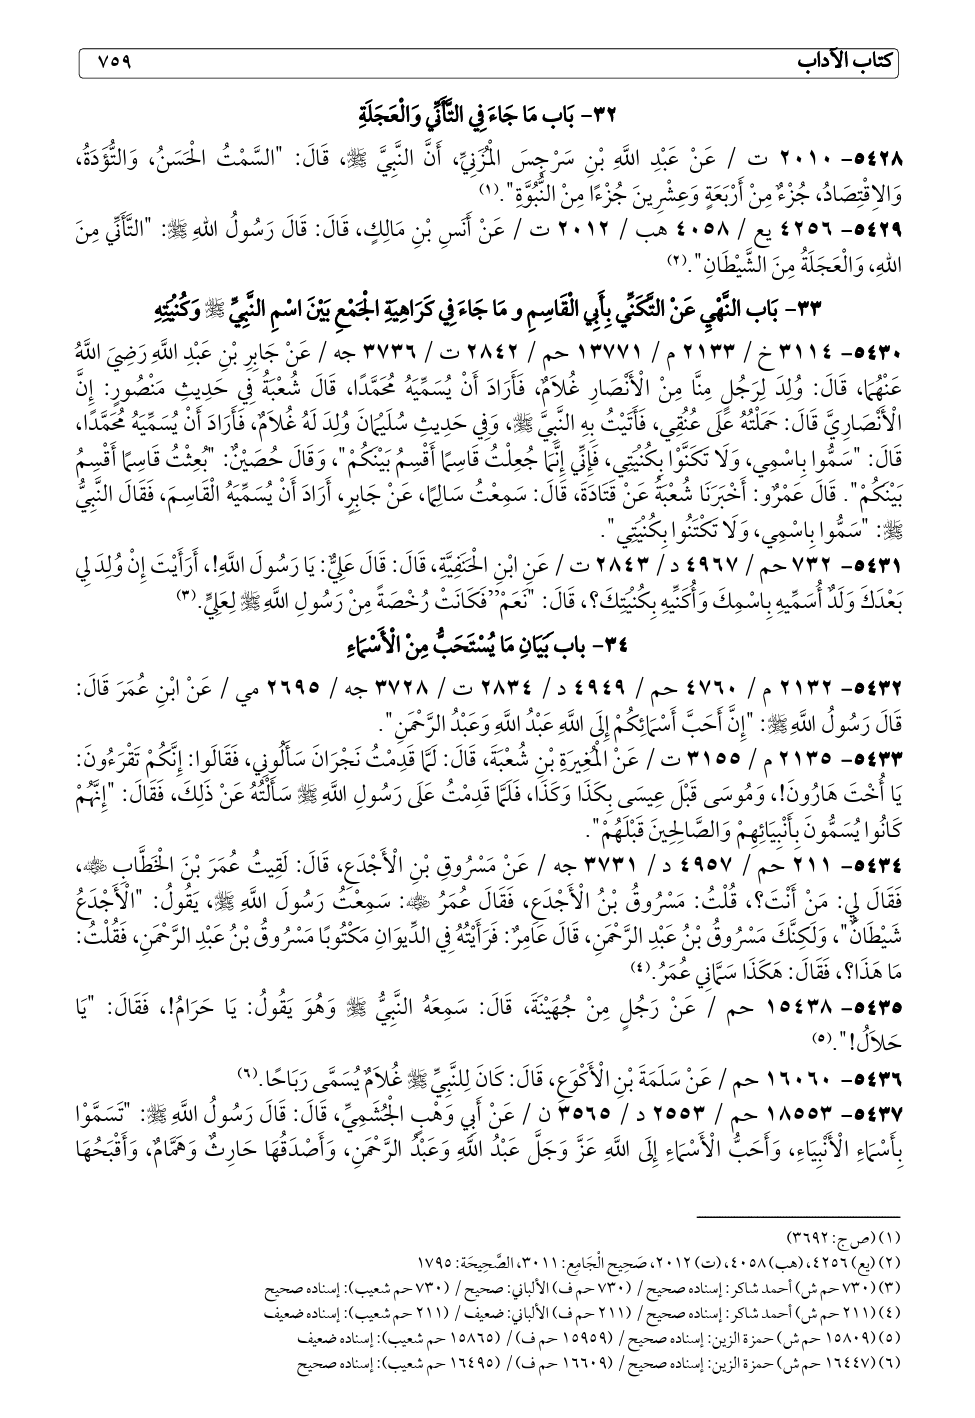 كتاب الآداب ٧٥٩
٣٢- بَاب مَا جَاءَ فِي التَّأَنِّي وَالْعَجَلَةِ
٥٤٢٨- ٢٠١٠ ت / عَنْ عَبْدِ اللَّهِ بْنِ سَرْجِسَ الْمُزَنِيِّ، أَنَّ النَّبِيَّ ﷺ، قَالَ: "السَّمْتُ الْحَسَنُ، وَالتُّؤَدَةُ،
وَالِاقْتِصَادُ، جُزْءٌ مِنْ أَرْبَعَةٍ وَعِشْرِينَ جُزْءًا مِنْ النُّبُوَّةِ".(١)
٥٤٢٩- ٤٢٥٦ يع / ٤٠٥٨ هب / ٢٠١٢ ت / عَنْ أَنَسِ بْنِ مَالِكٍ، قَالَ: قَالَ رَسُولُ اللهِ ﷺ: "التَّأَنِّي مِنَ
اللهِ، وَالْعَجَلَةُ مِنَ الشَّيْطَانِ".(٢)
٣٣- بَاب النَّهْيِ عَنْ التَّكَنِّي بِأَبِي الْقَاسِمِ و مَا جَاءَ فِي كَرَاهِيَةِ الْجَمْعِ بَيْنَ اسْمِ النَّبِيِّ ﷺ وَكُنْيَتِهِ
٥٤٣٠- ٣١١٤ خ / ٢١٣٣ م / ١٣٧٧١ حم / ٢٨٤٢ ت / ٣٧٣٦ جه / عَنْ جَابِرِ بْنِ عَبْدِ اللَّهِ رَضِيَ اللَّهُ
عَنْهُمَا، قَالَ: وُلِدَ لِرَجُلٍ مِنَّا مِنْ الْأَنْصَارِ غُلَامٌ، فَأَرَادَ أَنْ يُسَمِّيَهُ مُحَمَّدًا، قَالَ شُعْبَةُ فِي حَدِيثِ مَنْصُورٍ: إِنَّ
الْأَنْصَارِيَّ قَالَ: حَمَلْتُهُ عَلَى عُنُقِي، فَأَتَيْتُ بِهِ النَّبِيَّ ﷺ، وَفِي حَدِيثِ سُلَيْمَانَ وُلِدَ لَهُ غُلَامٌ، فَأَرَادَ أَنْ يُسَمِّيَهُ مُحَمَّدًا،
قَالَ: "سَمُّوا بِاسْمِي، وَلَا تَكَنَّوْا بِكُنْيَتِي، فَإِنِّي إِنَّمَا جُعِلْتُ قَاسِمًا أَقْسِمُ بَيْنَكُمْ"، وَقَالَ حُصَيْنٌ: "بُعِثْتُ قَاسِمًا أَقْسِمُ
بَيْنَكُمْ". قَالَ عَمْرٌو: أَخْبَرَنَا شُعْبَةُ عَنْ قَتَادَةَ، قَالَ: سَمِعْتُ سَالِمًا، عَنْ جَابِرٍ، أَرَادَ أَنْ يُسَمِّيَهُ الْقَاسِمَ، فَقَالَ النَّبِيُّ
ﷺ: "سَمُّوا بِاسْمِي، وَلَا تَكْتَنُوا بِكُنْيَتِي".
٥٤٣١- ٧٣٢ حم / ٤٩٦٧ د / ٢٨٤٣ ت / عَنِ ابْنِ الْحَنَفِيَّةِ، قَالَ: قَالَ عَلِيٌّ: يَا رَسُولَ اللَّهِ!، أَرَأَيْتَ إِنْ وُلِدَ لِي
بَعْدَكَ وَلَدٌ أُسَمِّيهِ بِاسْمِكَ وَأُكَنِّيهِ بِكُنْيَتِكَ؟، قَالَ: "نَعَمْ" فَكَانَتْ رُخْصَةً مِنْ رَسُولِ اللَّهِ ﷺ لِعَلِيٍّ.(٣)
٣٤- باب بَيَانِ مَا يُسْتَحَبُّ مِنْ الْأَسْمَاءِ
٥٤٣٢- ٢١٣٢ م / ٤٧٦٠ حم / ٤٩٤٩ د / ٢٨٣٤ ت / ٣٧٢٨ جه / ٢٦٩٥ مي / عَنْ ابْنِ عُمَرَ قَالَ:
قَالَ رَسُولُ اللَّهِ ﷺ: "إِنَّ أَحَبَّ أَسْمَائِكُمْ إِلَى اللَّهِ عَبْدُ اللَّهِ وَعَبْدُ الرَّحْمَنِ".
٥٤٣٣- ٢١٣٥ م / ٣١٥٥ ت / عَنْ الْمُغِيرَةِ بْنِ شُعْبَةَ، قَالَ: لَمَّا قَدِمْتُ نَجْرَانَ سَأَلُونِي، فَقَالُوا: إِنَّكُمْ تَقْرَءُونَ:
يَا أُخْتَ هَارُونَ!، وَمُوسَى قَبْلَ عِيسَى بِكَذَا وَكَذَا، فَلَمَّا قَدِمْتُ عَلَى رَسُولِ اللَّهِ ﷺ سَأَلْتُهُ عَنْ ذَلِكَ، فَقَالَ: "إِنَّهُمْ
كَانُوا يُسَمُّونَ بِأَنْبِيَائِهِمْ وَالصَّالِحِينَ قَبْلَهُمْ".
٥٤٣٤- ٢١١ حم / ٤٩٥٧ د / ٣٧٣١ جه / عَنْ مَسْرُوقِ بْنِ الْأَجْدَعِ، قَالَ: لَقِيتُ عُمَرَ بْنَ الْخَطَّابِ ﵁،
فَقَالَ لِي: مَنْ أَنْتَ؟، قُلْتُ: مَسْرُوقُ بْنُ الْأَجْدَعِ، فَقَالَ عُمَرُ ﵁: سَمِعْتُ رَسُولَ اللَّهِ ﷺ، يَقُولُ: "الْأَجْدَعُ
شَيْطَانٌ"، وَلَكِنَّكَ مَسْرُوقُ بْنُ عَبْدِ الرَّحْمَنِ، قَالَ عَامِرٌ: فَرَأَيْتُهُ فِي الدِّيوَانِ مَكْتُوبًا مَسْرُوقُ بْنُ عَبْدِ الرَّحْمَنِ، فَقُلْتُ:
مَا هَذَا؟، فَقَالَ: هَكَذَا سَمَّانِي عُمَرُ.(٤)
٥٤٣٥- ١٥٤٣٨ حم / عَنْ رَجُلٍ مِنْ جُهَيْنَةَ، قَالَ: سَمِعَهُ النَّبِيُّ ﷺ وَهُوَ يَقُولُ: يَا حَرَامُ!، فَقَالَ: "يَا
حَلَالُ!".(٥)
٥٤٣٦- ١٦٠٦٠ حم / عَنْ سَلَمَةَ بْنِ الْأَكْوَعِ، قَالَ: كَانَ لِلنَّبِيِّ ﷺ غُلَامٌ يُسَمَّى رَبَاحًا.(٦)
٥٤٣٧- ١٨٥٥٣ حم / ٢٥٥٣ د / ٣٥٦٥ ن / عَنْ أَبِي وَهْبٍ الْجُشَمِيِّ، قَالَ: قَالَ رَسُولُ اللَّهِ ﷺ: "تَسَمَّوْا
بِأَسْمَاءِ الْأَنْبِيَاءِ، وَأَحَبُّ الْأَسْمَاءِ إِلَى اللَّهِ عَزَّ وَجَلَّ عَبْدُ اللَّهِ وَعَبْدُ الرَّحْمَنِ، وَأَصْدَقُهَا حَارِثٌ وَهَمَّامٌ، وَأَقْبَحُهَا
(١) (ص ج: ٣٦٩٢)
(٢) (يع) ٤٢٥٦، (هب) ٤٠٥٨، (ت) ٢٠١٢، صَحِيح الْجَامِع: ٣٠١١، الصَّحِيحَة: ١٧٩٥
(٣) (٧٣٠ حم ش) أحمد شاكر: إسناده صحيح / (٧٣٠ حم ف) الألباني: صحيح / (٧٣٠ حم شعيب): إسناده صحيح
(٤) (٢١١ حم ش) أحمد شاكر: إسناده صحيح / (٢١١ حم ف) الألباني: ضعيف / (٢١١ حم شعيب): إسناده ضعيف
(٥) (١٥٨٠٩ حم ش) حمزة الزين: إسناده صحيح / (١٥٩٥٩ حم ف) / (١٥٨٦٥ حم شعيب): إسناده ضعيف
(٦) (١٦٤٤٧ حم ش) حمزة الزين: إسناده صحيح / (١٦٦٠٩ حم ف) / (١٦٤٩٥ حم شعيب): إسناده صحيح